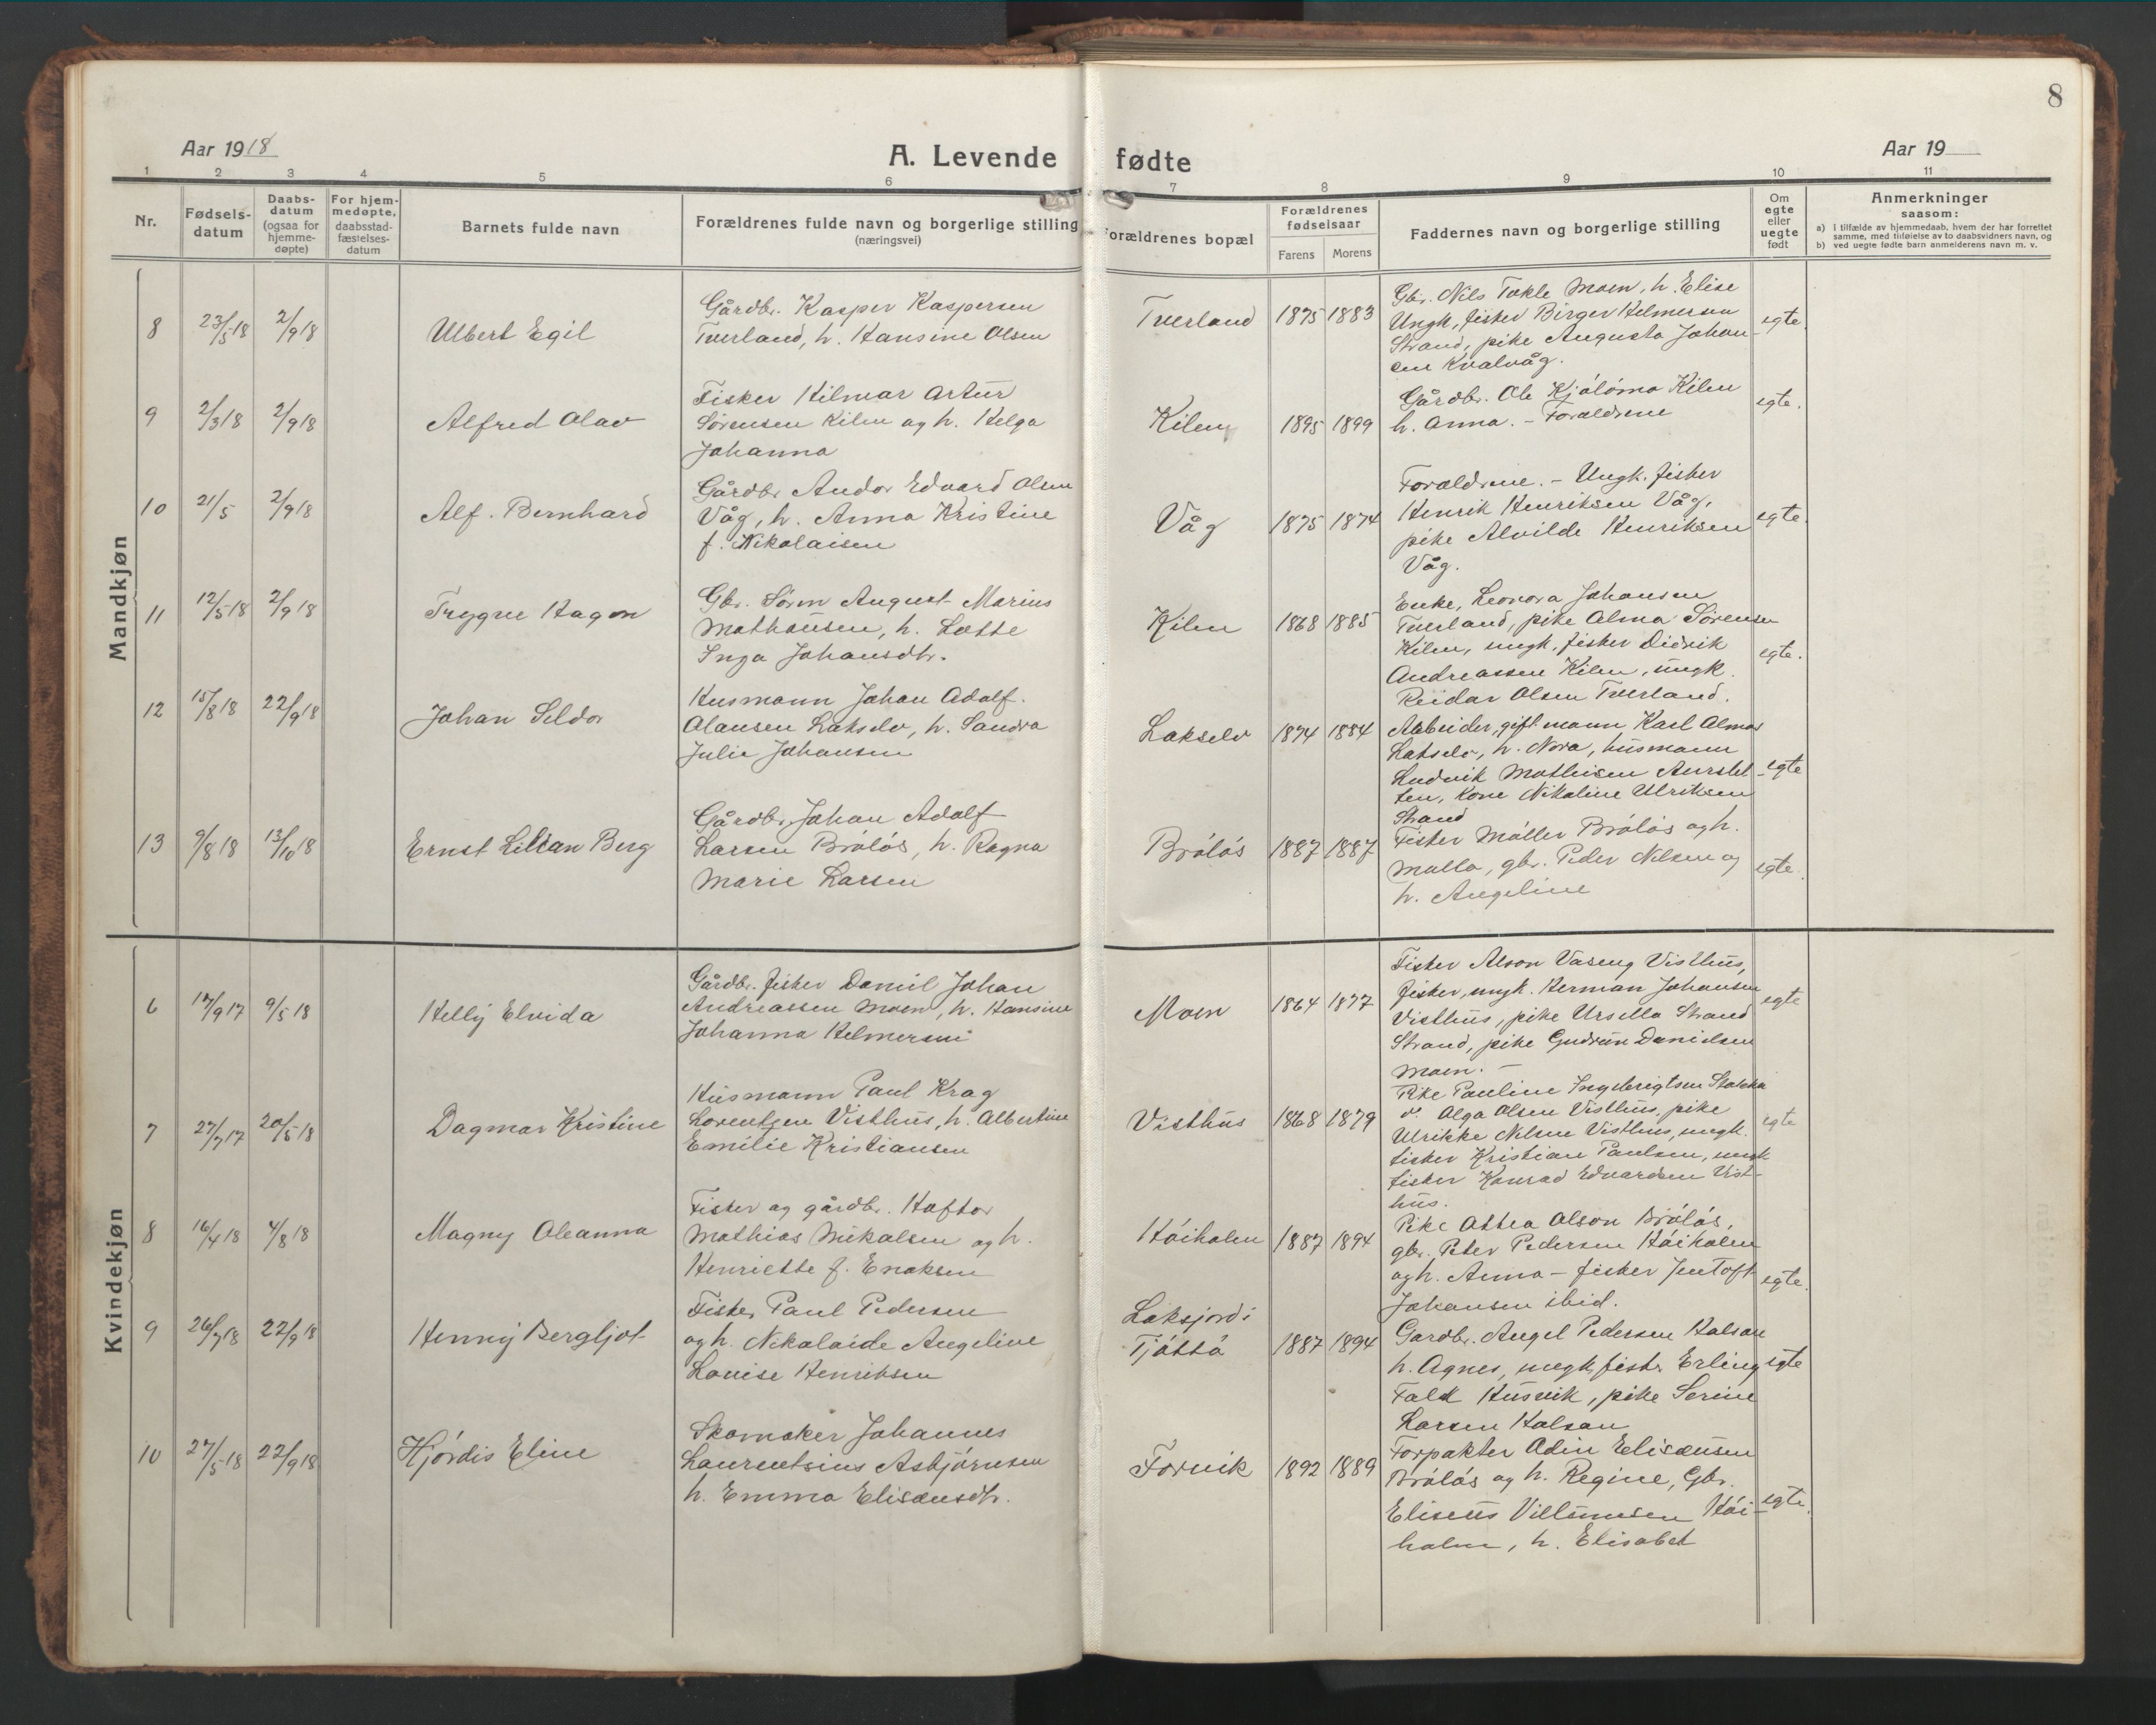 8
Aar 1918
A. Levende fødte
Aar 19
1 2 3 4 5 6 7 8 9 10 11
Nr.
Fødsels-
datum
Daabs-
datum
(ogsaa for
hjemme-
døpte)
For hjem-
medøpte,
daabsstad-
fæstelses-
datum
Barnets fulde navn
Forældrenes fulde navn og borgerlige stilling
(næringsvei)
orældrenes bopæl
Forældrenes
fødselsaar
Farens Morens
Faddernes navn og borgerlige stilling
Om
egte
eller
uegte
født
Anmerkninger
saasom:
a) i tilfælde av hjemmedaab, hvem der har forrettet
samme, med tilføielse av to daabsvidners navn, og
b) ved uegte fødte barn anmelderens navn m. v.
Mandkjøn
8 23/5 18 2/9 18
Ulbert Egil
Gårdbr. Kasper Kaspersen
Tverland, h. Hansine Olsen
Tverland 1875 1883
Gbr. Nils Tokle Moen, h. Elise
Ungk, fisker Birger Helmersen
Strand, pike Augusta Johan
sen Kvalvåg.
egte.
9 2/3 18 2/9 18
Alfred Olav
Fisker Hilmar Artur
Sørensen Kilen og h. Helga
Johanna
Kilen 1895 1899
Gårdbr. Ole Kilen
h. Anna. - Forældrene
egte.
10 21/5 2/9 18
Alf. Bernhard
Gårdbr Andor Edvard Olsen
Våg, h. Anna Kristine
f. Nikolaisen
Våg 1875 1874
Forældrene. - Ungk. fisker
Henrik Henriksen Våg,
pike Alvilde Henriksen
Våg.
egte.
11 12/5 18 2/9 18
Trygve Hagon
Gbr. Søren August Marius
Mathausen, h. Lotte
Inga Johansdtr.
Kilen 1868 1885
Enke, Leonora Johansen
Tverland, pike Alma Sørensen
Kilen, ungk, fisker Didrik
Andreassen Kilen, ungk.
Reidar Olsen Tverland.
egte.
12 15/8 18 22/9 18
Johan Seldor
Husmann Johan Adolf
Olausen Lakselv, h. Sandra
Julie Johansen
Lakselv 1874 1884
Arbeider, gift mann Karl Almar
Lakselv, h. Nora, husmann
Ludvik Mathisen Aurstet
ten, Kone Nikoline Ulriksen
Strand
egte
13 9/8 18 13/10 18
Ernst Lillian Berg
Gårdbr. Johan Adolf
Larsen Bröløs, h. Ragna
Marie Larsen
Bröløs 1887 1887
Fisker Møller Bröløs og h.
Malla, gbr. Peder Nilsen og
h. Angeline
egte.
Kvindekjøn
6 17/9 17 9/5 18
Helly Elvida
Gårdbr. fisker Daniel Johan
Andreassen Moen, h. Hansine
Johanna Helmersen
Moen 1864 1877
Fisker Alson Våseng Visthus,
fisker, ungk. Herman Johansen
Visthus, pike Ursella Strand
Strand, pike Gudrun Danielsen
Moen. -
egte
7 27/7 17 20/5 18
Dagmar Kristine
Husmann Paul Krag
Lorentzen Visthus, h. Albertine
Emilie Kristiansen
Visthus 1868 1879
Pike Pauline Ingebrigtsen Stokka
do. Olga Olsen Visthus, pike
Ulrikke Nilsen Visthus, ungk.
fisker Kristian Paulsen, ungk
fisker Konrad Edvardsen Vist-
hus.
egte
8 16/4 18 4/8 18
Magny Oleanna
Fisker og gårdbr. Haftor
Mathias Mikalsen og h.
Henriette f. Enoksen
Høiholm 1887 1894
Pike Attea Olson Bröløs,
gbr. Peter Pedersen Høiholm
og h. Anna - fisker Jentoft
Johansen ibid.
egte.
9 26/7 18 22/9 18
Henny Bergljot
Fisker Paul Pedersen
og h. Nikolaide Angeline
Lovise Henriksen
Laksjord i
Tjøttø 1887 1894
Gårdbr. Angel Pedersen Halsan
h. Agnes, ungk, fisker Erling
Falk Husvik, pike Serine
Larsen Halsan
egte
10 27/5 18 22/9 18
Hjørdis Eline
Skomaker Johannes
Laurentsius Asbjørnsen
h. Emma Elisæusdtr.
Forvik 1892 1889
Forpakter Odin Elisæusen
Bröløs og h. Regine, Gbr.
Eliseus Villumsen Høi-
holm, h. Elisabet
egte.